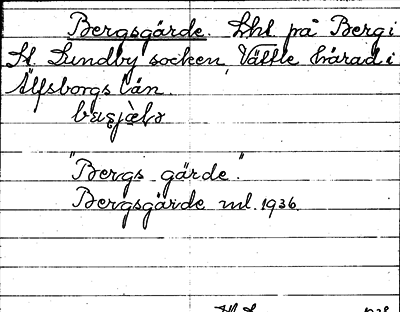 Bergsgärde. Lht på Berg i
St. Lundby socken, Vättle härad i
Älfsborgs län.
"Bergs gärde".
Bergsgärde ml. 1936.